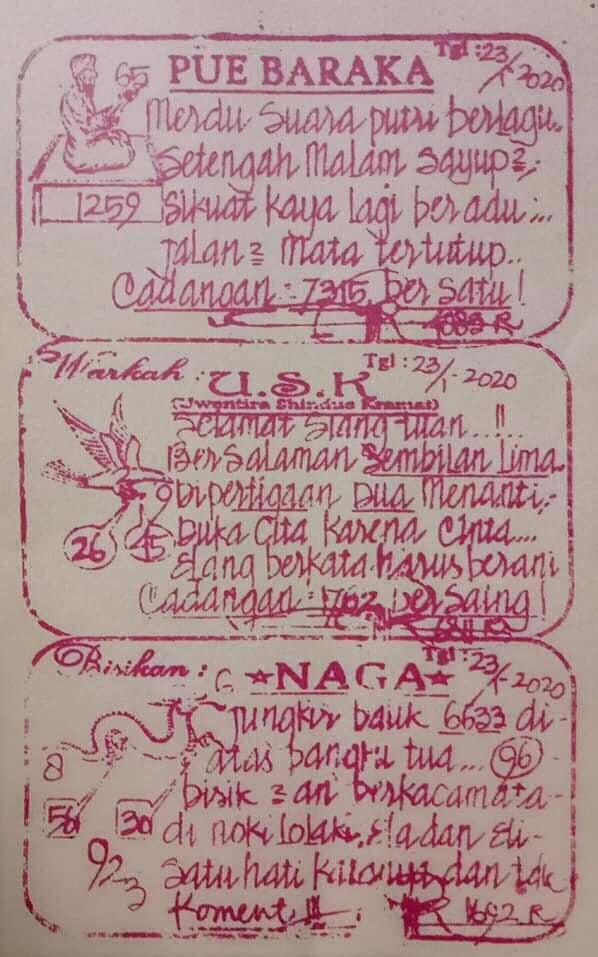 Tgl: 23/1-2020
65 PUE BARAKA
Merdu suara putri berlagu..
Setengah Malam sayup2,.
1259 Sikuat kaya lagi beradu...
Jalan2 Mata tertutup..
Cadangan: 7315 bersatu!
R
Warkah: U.S.K Tgl: 23/1-2020
Selamat siang tuan..!!..
Bersalaman Sembilan Lima
Dipertigaan Dua Menanti,-
26 45 Duka Cita Karena Cinta...
Elang berkata harus berani
Cadangan: 1702 bersaing!
Bisikan: ★NAGA★ Tgl: 23/1-2020
6
Jungkir bauk 6633 di-
8 atas bangku tua... 96
bisik2an berkacamata-
50 30 di noki lolaki, Ela dan Eli-
923 Satu hati dan tak
Koment!!! R 1692.R